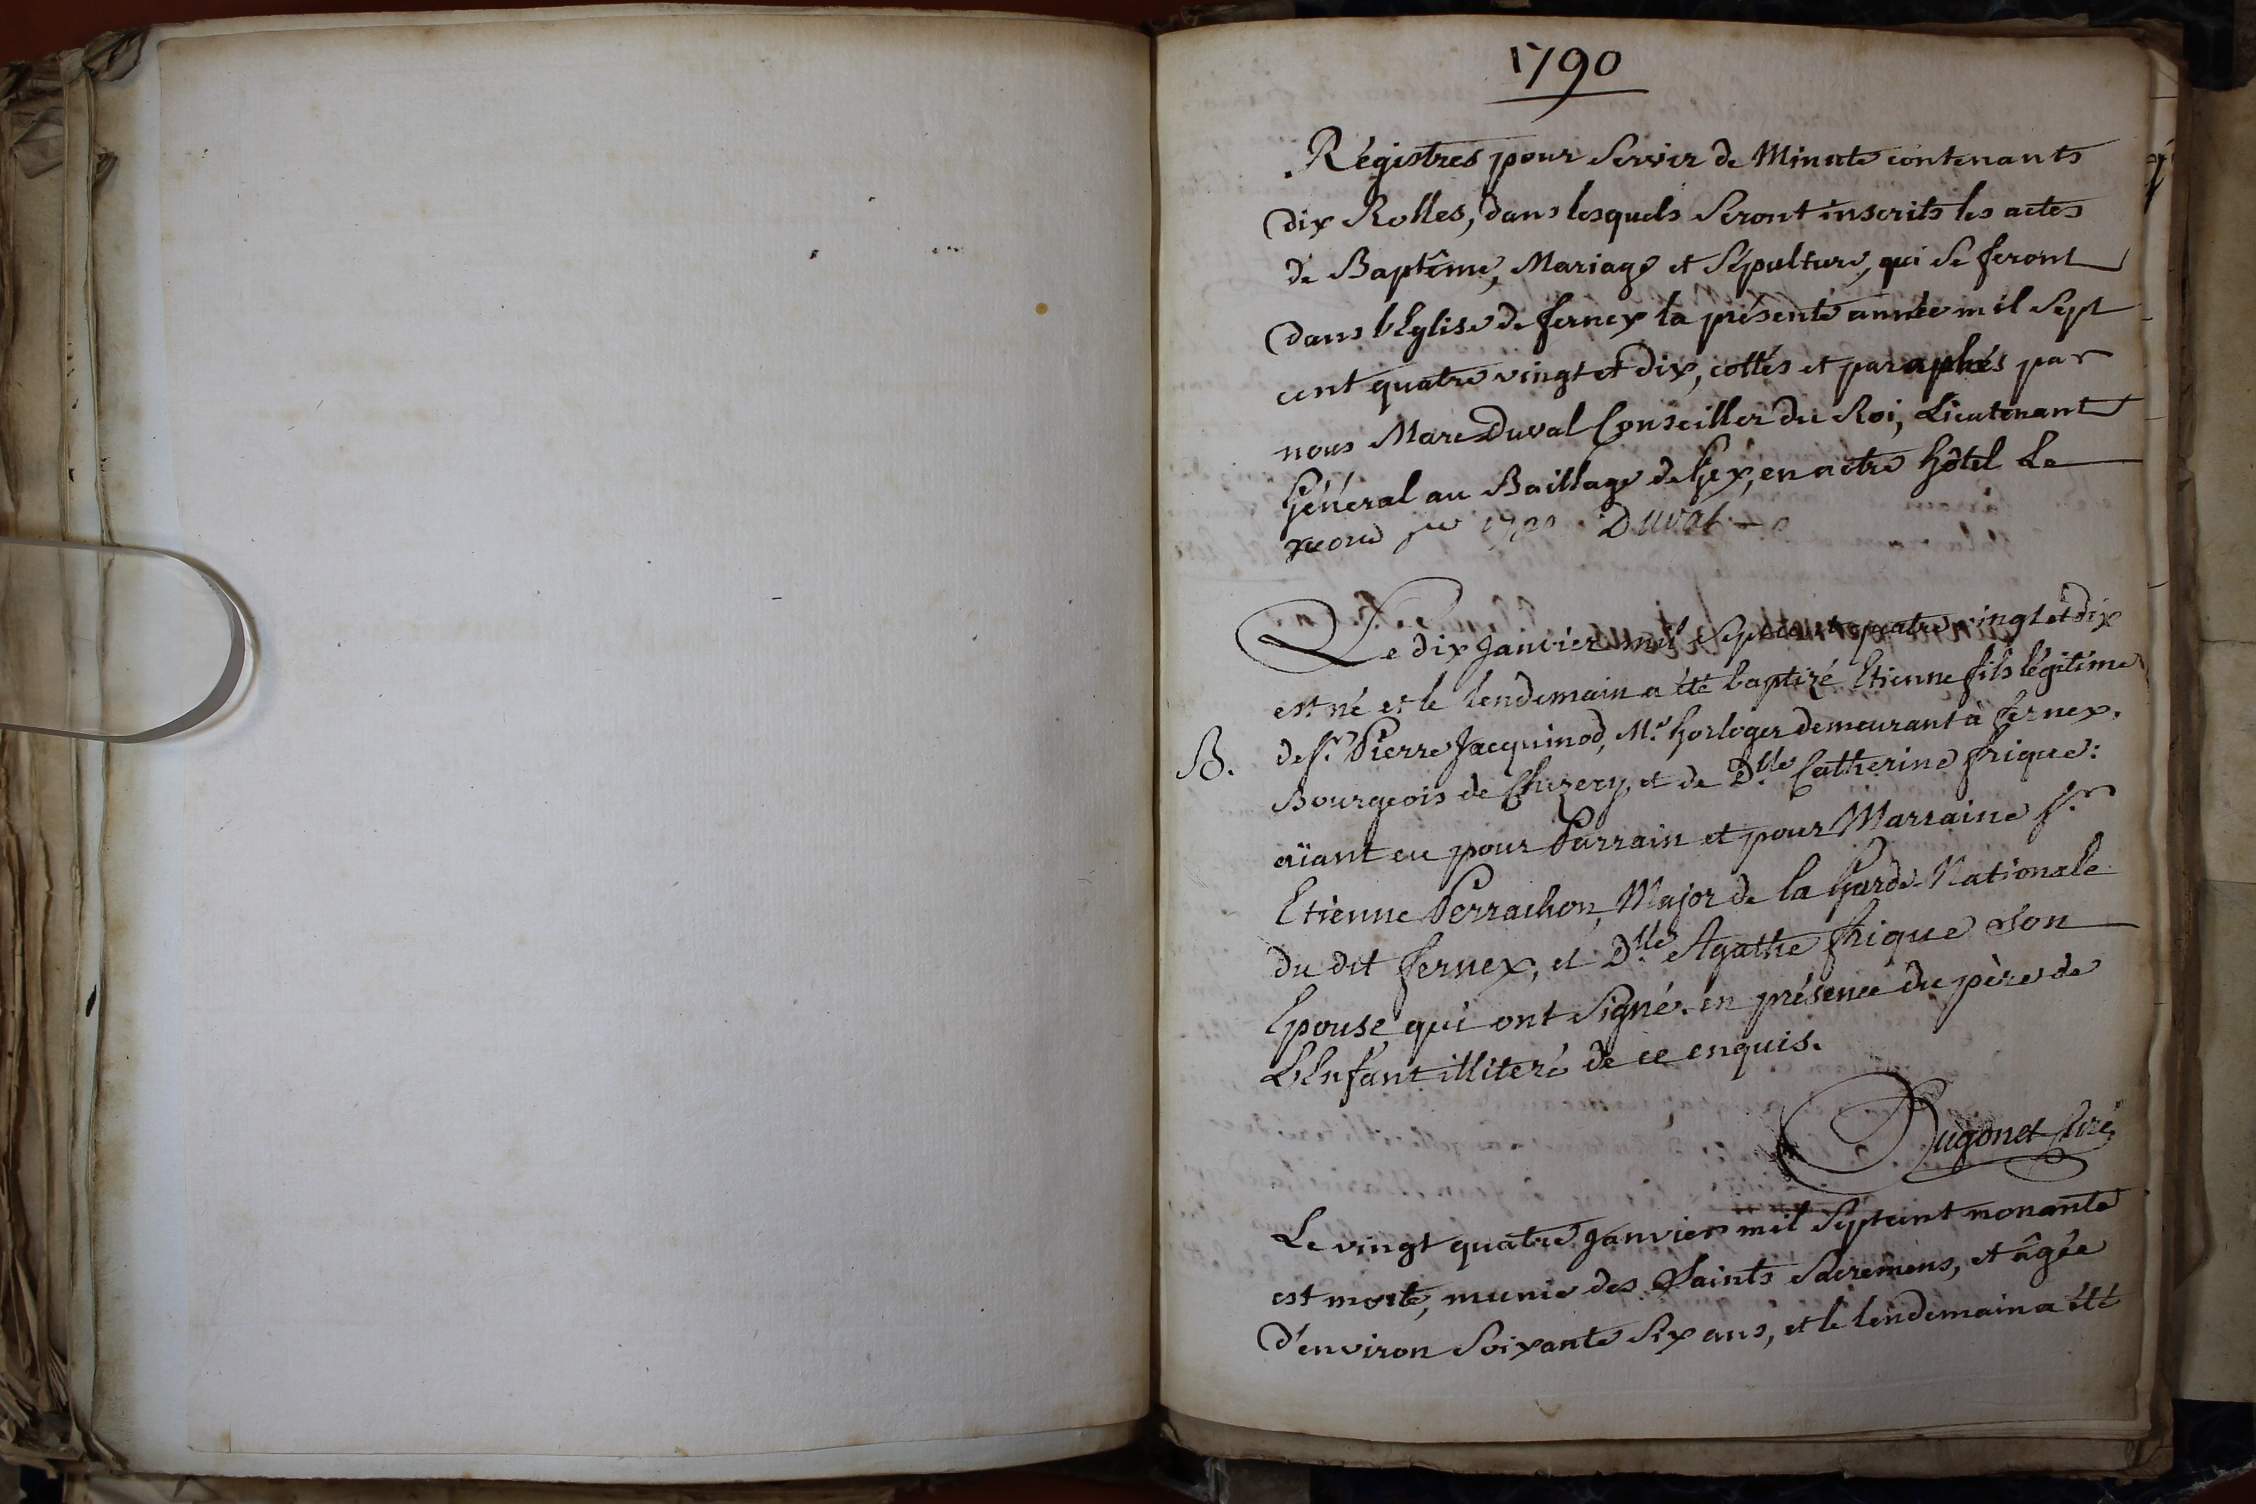 1790
Régistres pour Servir de Minute contenants
dix Rolles, dans lesquels Seront inscrits les actes
de Baptême, Mariage et Sépulture, qui se feront
dans l'Eglise de fernex la présente année mil Sept
cent quatre vingt et dix, cottés et paraphés par
nous Marc Duval Conseiller du Roi, Lieutenant
Général au Baillage de Gex, en notre hôtel Le
1790 Duval
Le dix Janvier mil Septcent quatre vingt et dix
est né et le lendemain a été baptizé Etienne fils légitime
de Sr. Pierre Jacquinod, Me. horloger demeurant à fernex,
B.
Bourgeois de Chezery, et de Dlle. Catherine frique:
aïant eu pour Parrain et pour Marraine Sr.
Etienne Perrachon, Major de la Garde-Nationale
du dit fernex, et Dlle. Agathe frique son
Epouse, qui ont signé. en présence du père de
L'Enfant illiteré de ce enquis.
Hugonet Curé
Le vingt quatre Janvier mil Septcent nonante
est morte, munie des Saints Sacremens, et âgée
d'environ Soixante Six ans, et le lendemain a été